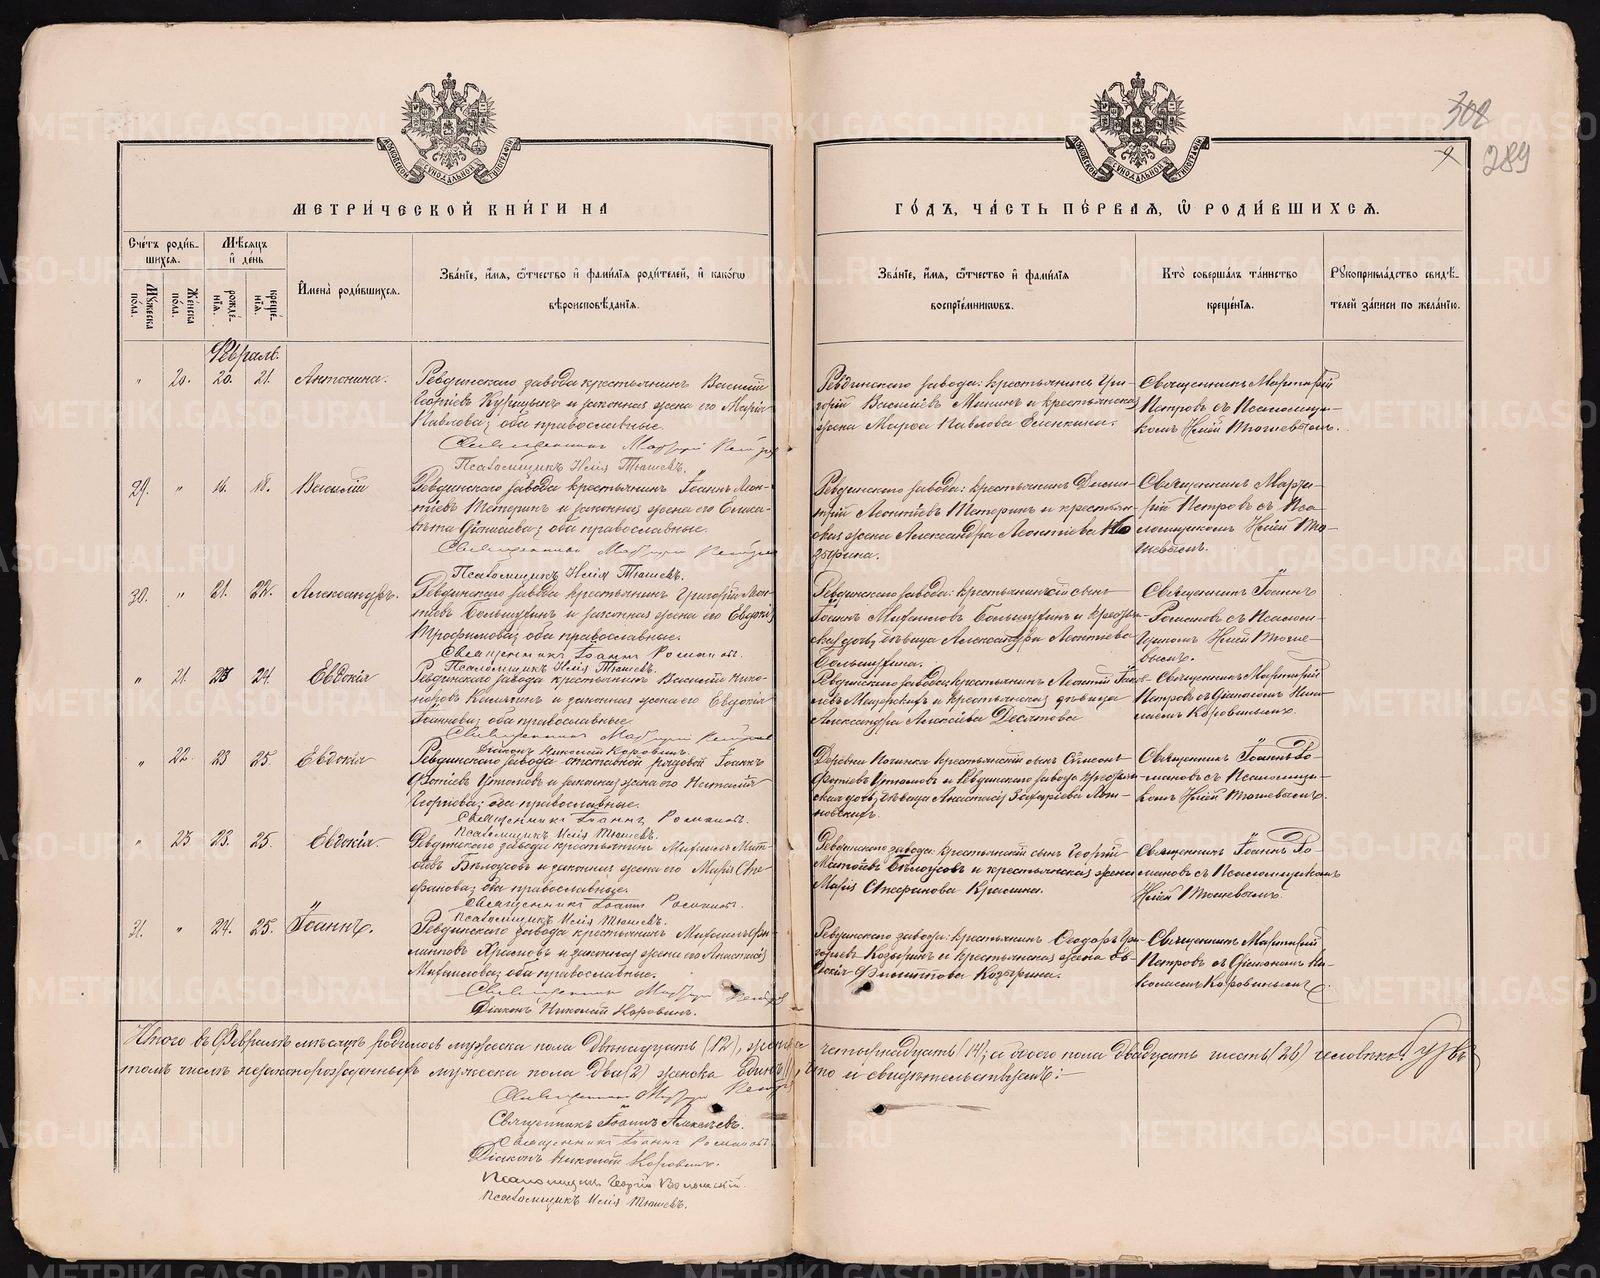 МЕТРИ́ЧЕСКОЙ КНИ́ГИ НА
ГО́ДЪ, ЧА́СТЬ ПЕ́РВАЯ, Ѡ҆ РОДИ́ВШИХСЯ.
308
289
Сче́тъ роди́в-
шихся.
Мѣ́сяцъ
и҆ де́нь
Мꙋ́жеска
по́ла.
Же́нска
по́ла.
рожде́-
нїя.
креще́-
нїя.
И҆мена̀ роди́вшихся.
Зва́нїе, и҆́мя, ѻ҆́тчество и҆ фами́лїя роди́телей, и҆ како́гѡ
вѣроисповѣ́данїя.
Зва́нїе, и҆́мя, ѻ҆́тчество и҆ фами́лїя
воспрїе́мниковъ.
Кто̀ соверша́лъ та́инство
креще́нїя.
Рꙋкоприкла́дство свидѣ́-
телей за́писи по жела́нїю.
Февраль.
" 20. 20. 21. Антонина.
Ревдинскаго завода крестьянинъ Василій
и законная жена его Марія
Павлова; оба православные.
Священникъ Мартирій Петровъ
Псаломщикъ Илія Тюшевъ.
Ревдинскаго завода: крестьянинъ Гри-
горій Василіевъ Мининъ и крестьянская
жена Марѳа Павлова Еленкина.
Священникъ Мартирій
Петровъ съ Псаломщи-
комъ Иліей Тюшевымъ.
29. " 16. 18. Василій
Ревдинскаго завода крестьянинъ Іоаннъ Леон-
тіевъ и законная жена его Елиса-
вета; оба православные.
Священникъ Мартирій Петровъ
Псаломщикъ Илія Тюшевъ.
Ревдинскаго завода: крестьянинъ Дими-
трій Леонтіевъ и крестьян-
ская жена Александра Леонтіева
Священникъ Марти-
рій Петровъ съ Пса-
ломщикомъ Иліей Тю-
шевымъ.
30. " 21. 22. Александръ.
Ревдинскаго завода крестьянинъ Григорій Леон-
тіевъ и законная жена его Евдокія
Трофимова; оба православные.
Священникъ Іоаннъ Романовъ.
Псаломщикъ Илія Тюшевъ.
Ревдинскаго завода: крестьянскій сынъ
Іоаннъ и крестьян-
ская дочь, дѣвица Александра Леонтіева
Священникъ Іоаннъ
Романовъ съ Псалом-
щикомъ Иліей Тюше-
вымъ.
" 21. 23 24. Евдокія
Ревдинскаго завода крестьянинъ Василій Нико-
норовъ и законная жена его Евдокія
Іоаннова; оба православные.
Священникъ Мартирій Петровъ
Діаконъ Николай Коровинъ.
Ревдинскаго завода: крестьянинъ Леонтій
и крестьянская дѣвица
Александра Алексѣева Десятова
Священникъ Мартирій
Петровъ съ Діакономъ Нико-
лаемъ Коровинымъ.
" 22. 23 25. Евдокія
Ревдинскаго завода отставной рядовой Іоаннъ
Фотіевъ Утюмовъ и законная жена его Наталія
Георгіева; оба православные.
Священникъ Іоаннъ Романовъ.
Псаломщикъ Илія Тюшевъ.
Деревни крестьянскій сынъ Симеонъ
Фотіевъ Утюмовъ и Ревдинскаго завода крестьян-
ская дочь, дѣвица Анастасія Захаріева
Священникъ Іоаннъ Ро-
мановъ съ Псаломщи-
комъ Иліей Тюшевымъ.
" 23 23. 25. Евдокія.
Ревдинскаго завода крестьянинъ Михаилъ Мат-
ѳіевъ Бѣлоусовъ и законная жена его Марія Сте-
фанова; оба православные.
Священникъ Іоаннъ Романовъ.
Псаломщикъ Илія Тюшевъ.
Ревдинскаго завода: крестьянскій сынъ Георгій
Матѳіевъ Бѣлоусовъ и крестьянская жена
Марія Стефанова Красина.
Священникъ Іоаннъ Ро-
мановъ съ Псаломщикомъ
Иліей Тюшевымъ.
31. " 24. 25. Іоаннъ.
Ревдинскаго завода крестьянинъ Михаилъ Фи-
липповъ Храмовъ и законная жена его Анастасія
Михаилова; оба православные.
Священникъ Мартирій Петровъ
Діаконъ Николай Коровинъ.
Ревдинскаго завода: крестьянинъ Ѳеодоръ Гри-
горьевъ Козыринъ и крестьянская жена Ев-
докія Филиппова Козырина.
Священникъ Мартирій
Петровъ съ Діакономъ Ни-
колаемъ Коровинымъ.
Итого въ Февралѣ мѣсяцѣ родилось мужеска пола двѣнадцать (12), женска четырнадцать (14); а обоего пола двадцать шесть (26) человѣкъ. Въ
томъ числѣ незаконорожденныхъ мужеска пола два (2) женска единъ (1), что и свидѣтельствуемъ:
Священникъ Мартирій Петровъ
Священникъ Іоаннъ Алексѣевъ.
Священникъ Іоаннъ Романовъ.
Діаконъ Николай Коровинъ.
Псаломщикъ Георгій
Псаломщикъ Илія Тюшевъ.
METRIKI.GASO-URAL.RU